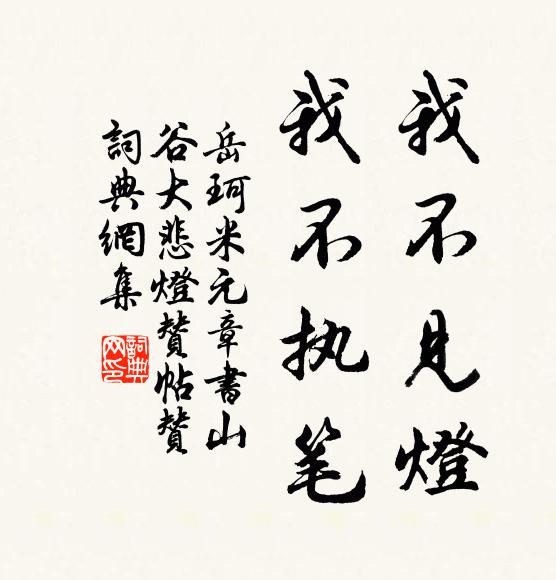 我不見燈
我不执笔
岳珂米元章書山
谷大悲燈贊帖贊
詞典網集
詞典
网印